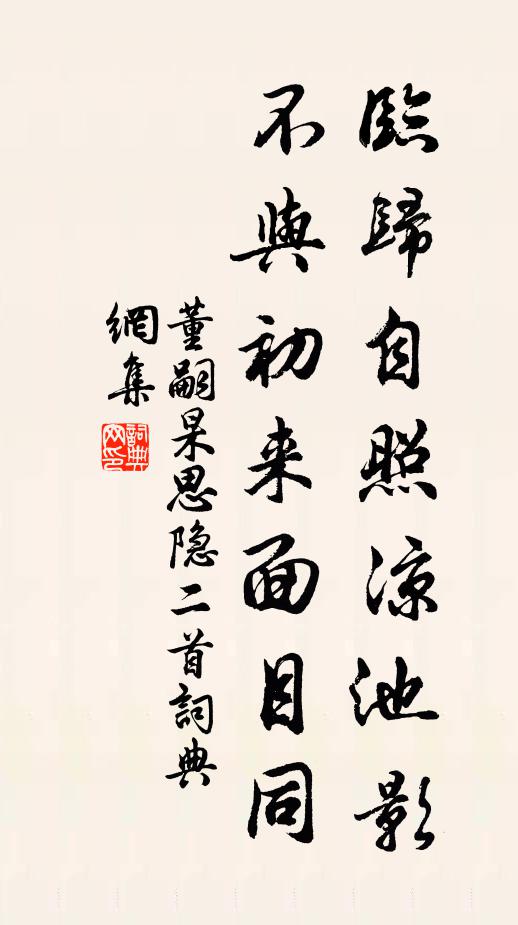 臨歸自照凉池影
不與初来面目同
董嗣杲思隐二首詞典
網集
詞典
网印